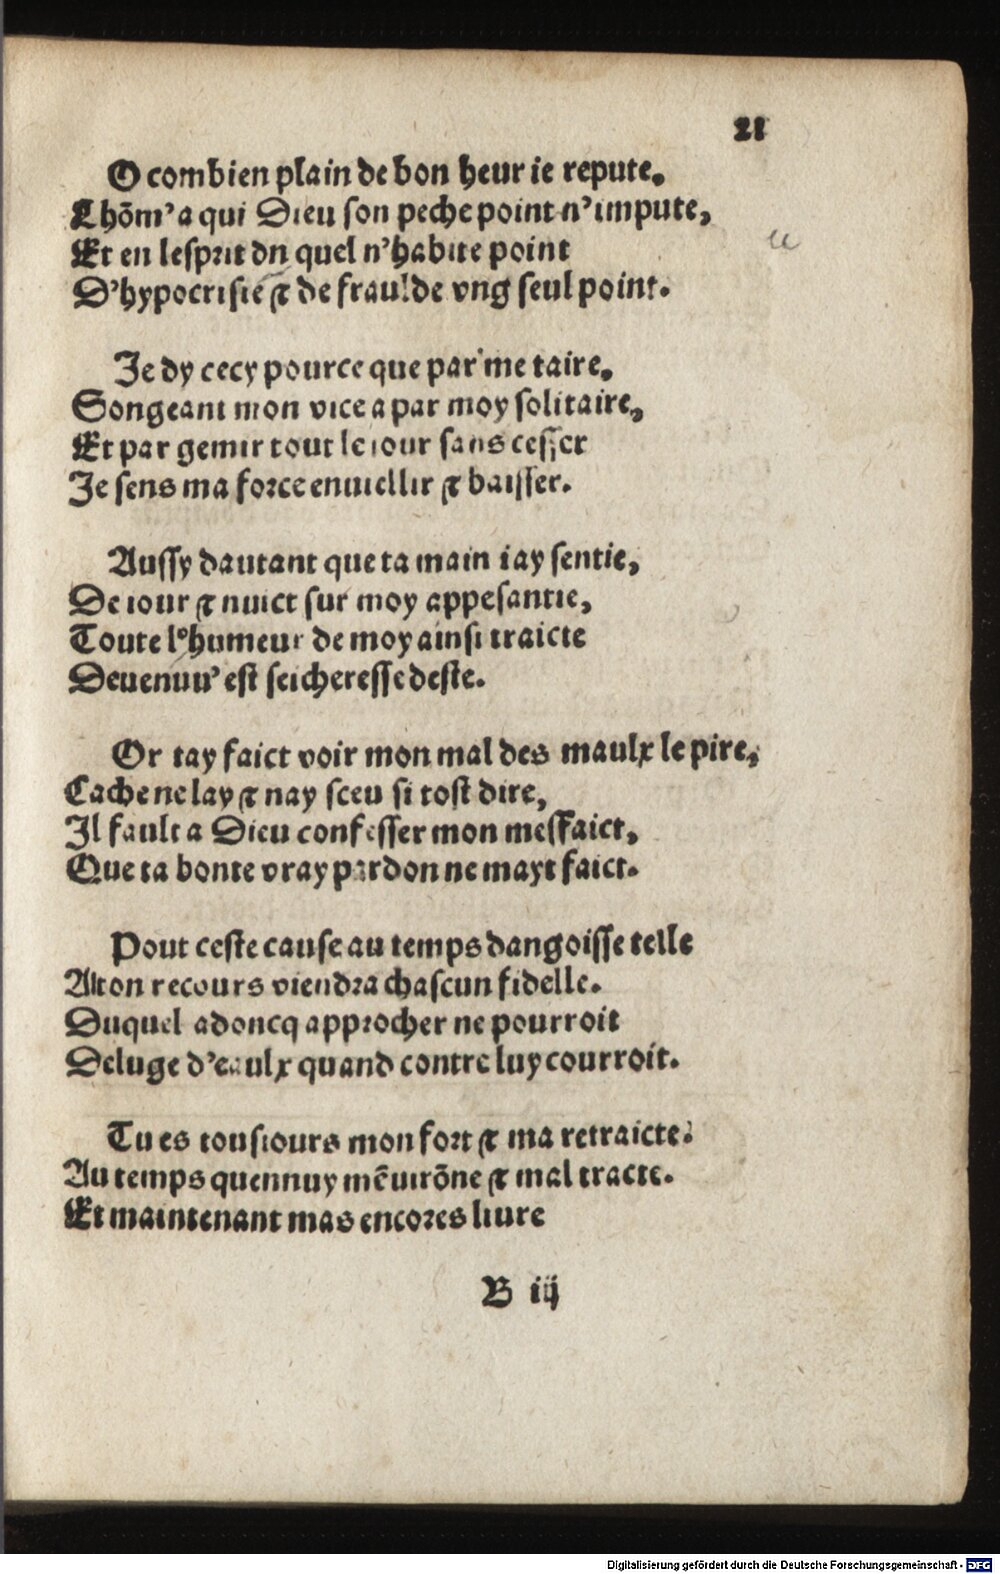 21
O combien plain de bon heur ie repute.
Lhõm’a qui Dieu son peche point n’impute,
Et en lesprit dn quel n’habite point
D’hypocrisie & de fraulde vng seul point.
Je dy cecy pource que par me taire,
Songeant mon vice a par moy solitaire,
Et par gemir tout le iour sans cesser
Je sens ma force enuiellir & baisser.
Aussy dautant que ta main iay sentie,
De iour & nuict sur moy appesantie,
Toute l’humeur de moy ainsi traicte
Deuenuu’ est seicheresse deste.
Or tay faict voir mon mal des maulx le pire,
Cache ne lay & nay sceu si tost dire,
Il fault a Dieu confesser mon meffaict,
Que ta bonte vray pardon ne mayt faict.
Pout ceste cause au temps dangoisse telle
A ton recours viendra chascun fidelle.
Duquel adoncq approcher ne pourroit
Deluge d’eaulx quand contre luy courroit.
Tu es tousiours mon fort & ma retraicte.
Au temps quennuy mẽuirõne & mal tracte.
Et maintenant mas encores liure
B iij
Digitalisierung gefördert durch die Deutsche Forschungsgemeinschaft - DFG